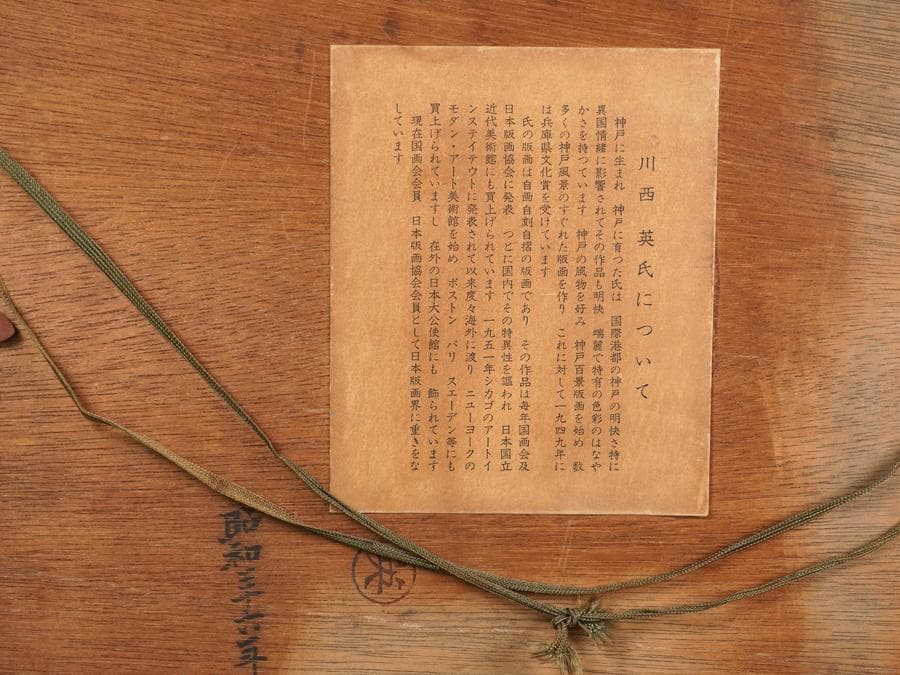 川西 英氏について
神戸に生まれ 神戸に育つた氏は 国際港都の神戸の明快さ特に
異国情緒に影響されてその作品も明快 端麗で特有の色彩のはなや
かさを持つています 神戸の風物を好み 神戸百景版画を始め 数
多くの神戸風景のすぐれた版画を作り これに対して一九四九年に
は兵庫県文化賞を受けています
氏の版画は自画自刻自摺の版画であり その作品は毎年国画会及
日本版画協会に発表 つどに国内でその特異性を謳われ 日本国立
近代美術館にも買上げられています 一九五一年シカゴのアートイ
ンステイテウトに発表されて以来度々海外に渡り ニユーヨークの
モダン・アート美術館を始め ボストン パリ スエーデン等にも
買上げられていますし 在外の日本大公使館にも 飾られています
現在国画会会員 日本版画協会会員として日本版画界に重きをな
しています
昭和三十六年
英